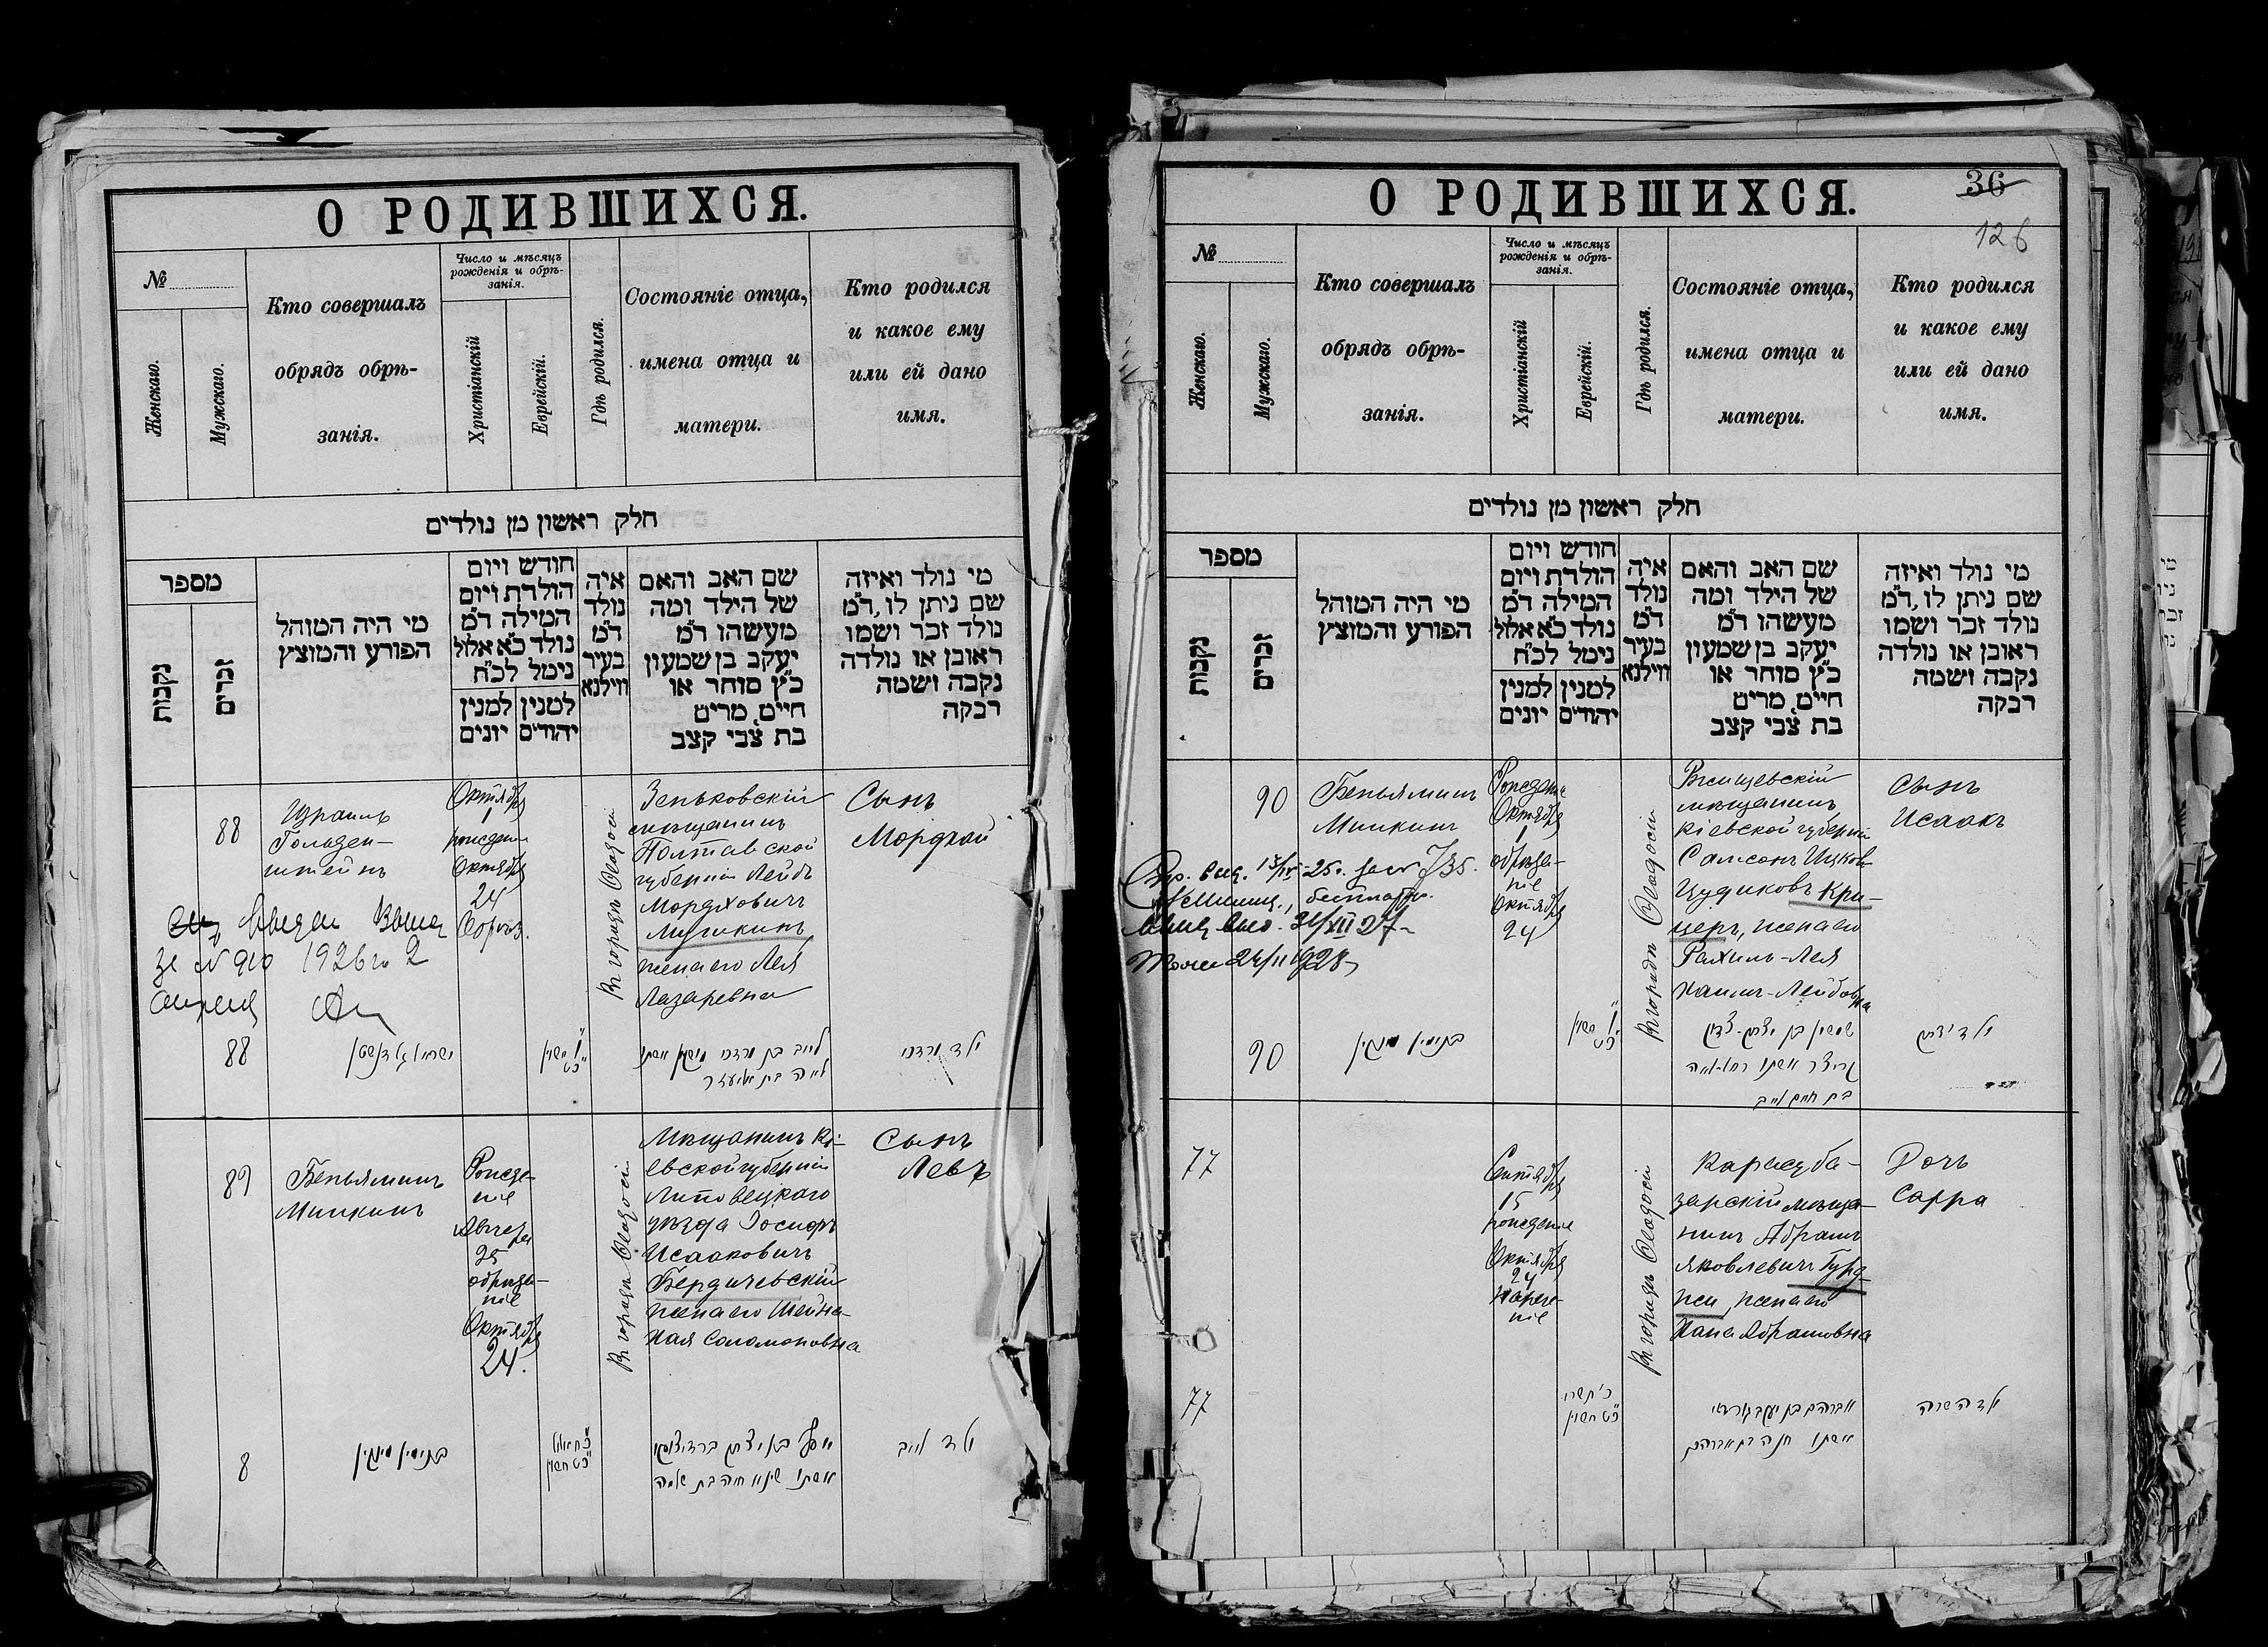 О РОДИВШИХСЯ.
№
Женскаго.
Мужскаго.
Кто совершалъ
обрядъ обрѣ-
занія.
Число и мѣсяцъ
рожденія и обрѣ-
занія.
Христіанскій
Еврейскій.
Гдѣ родился.
Состояніе отца,
имена отца и
матери.
Кто родился
и какое ему
или ей дано
имя.
חלק ראשון מן נולדים
מספר
נקבות
זכרים
מי היה המוהל
הפורע והמוצץ
חודש ויום
הולדת ויום
המילה ד״מ
נולד כ״א אלול
נימל לכ״ח
למנין
יונים
למנין
יהודים
איה
נולד
ד״מ
בעיר
ווילנא
שם האב והאם
של הילד ומה
מעשהו ד״מ
יעקב בן שמעון
כ״ץ סוחר או
חיים, מרים
בת צבי קצב
מי נולד ואיזה
שם ניתן לו, ד״מ
נולד זכר ושמו
ראובן או נולדה
נקבה ושמה
רבקה
88
Израиль
Гольден-
штейнъ
Октября
1
рожден
Октября
24
Въ городѣ Ѳеодосіи
Зеньковскій
мѣщанинъ
Полтавской
губерніи Лейбъ
Мордховичъ
Лушкинъ
жена его Лея
Лазаревна
Сынъ
Мордхай
1926 го 2
88
ילד מרדכי
89
Беньяминъ
Минкинъ
Рожде-
ніе
Августа
25
обрѣза-
ніе
Октября
24.
Въ городѣ Ѳеодосіи
Мѣщанинъ Кі-
евской губерніи
Липовецкаго
уѣзда Іосифъ
Исааковичъ
Бердичевскій
жена его Шейна-
Хая Соломоновна
Сынъ
Левъ
8
בנימין מינקין
ילד לייב
О РОДИВШИХСЯ.
36
126
№
Женскаго.
Мужскаго.
Кто совершалъ
обрядъ обрѣ-
занія.
Число и мѣсяцъ
рожденія и обрѣ-
занія.
Христіанскій
Еврейскій.
Гдѣ родился.
Состояніе отца,
имена отца и
матери.
Кто родился
и какое ему
или ей дано
имя.
חלק ראשון מן נולדים
מספר
נקבות
זכרים
מי היה המוהל
הפורע והמוצץ
חודש ויום
הולדת ויום
המילה ד״מ
נולד כ״א אלול
נימל לכ״ח
למנין
יונים
למנין
יהודים
איה
נולד
ד״מ
בעיר
ווילנא
שם האב והאם
של הילד ומה
מעשהו ד״מ
יעקב בן שמעון
כ״ץ סוחר או
חיים, מרים
בת צבי קצב
מי נולד ואיזה
שם ניתן לו, ד״מ
נולד זכר ושמו
ראובן או נולדה
נקבה ושמה
רבקה
90
Беньяминъ
Минкинъ
Рожденіе
Октября
1
обрѣза-
ніе
Октября
24
Въ городѣ Ѳеодосіи
Ржищевскій
мѣщанинъ
Кіевской губерніи
Самсонъ Ицков
Цудиковъ Кри-
церъ, жена его
Рахиль-Лея
Хаимъ-Лейбовна
Сынъ
Исаакъ
90
בנימין מינקין
ילד יצחק
77
Сентября
15
рожденіе
Октября
24
нарече-
ніе
Въ городѣ Ѳеодосіи
Карасуба-
зарскій мѣща-
нинъ Абрамъ
Яковлевичъ Гурд-
жи, жена его
Хана Абрамовна
Дочь
Сарра
77
כ׳ תשרי
כ״ט חשון
אשתו חנה בת אברהם
ילדה שרה